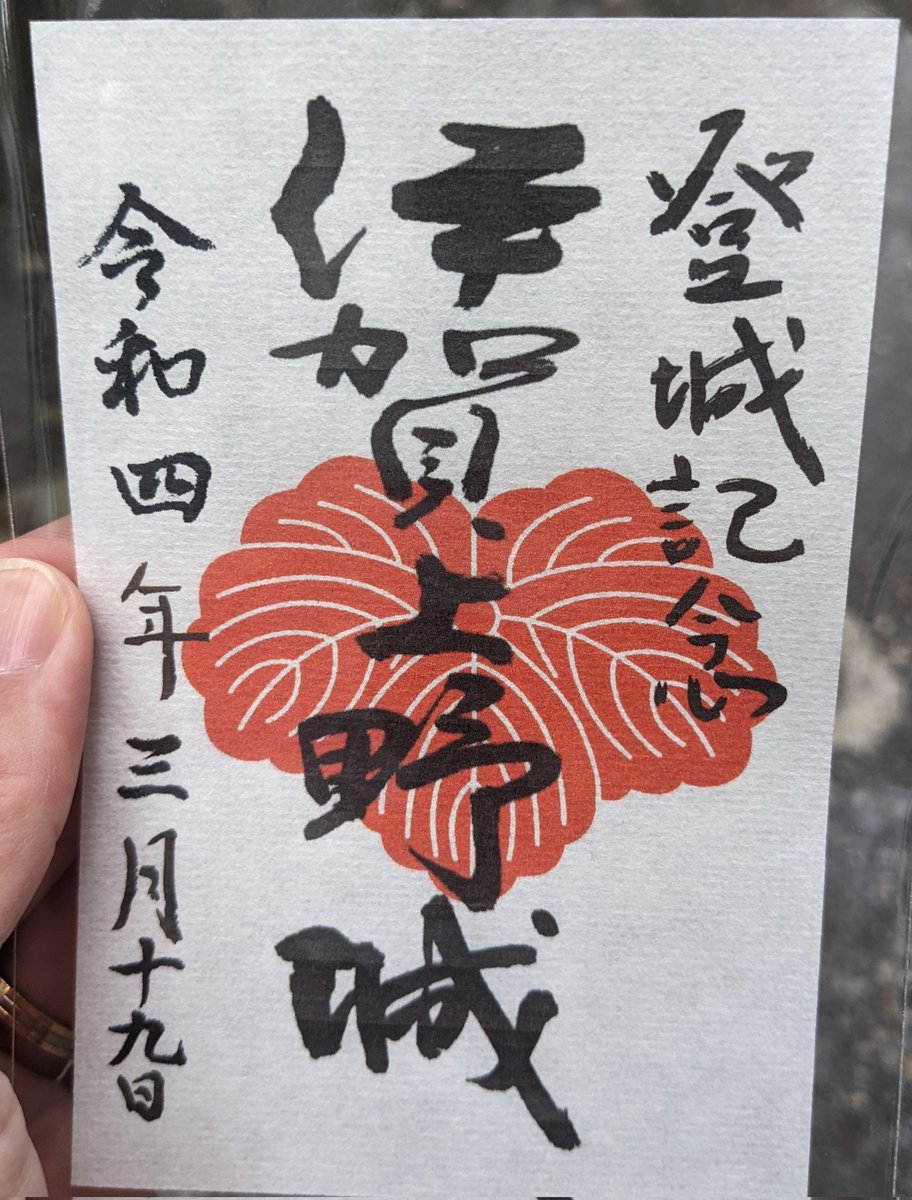 登城記念
伊賀上野城
令和四年三月十九日